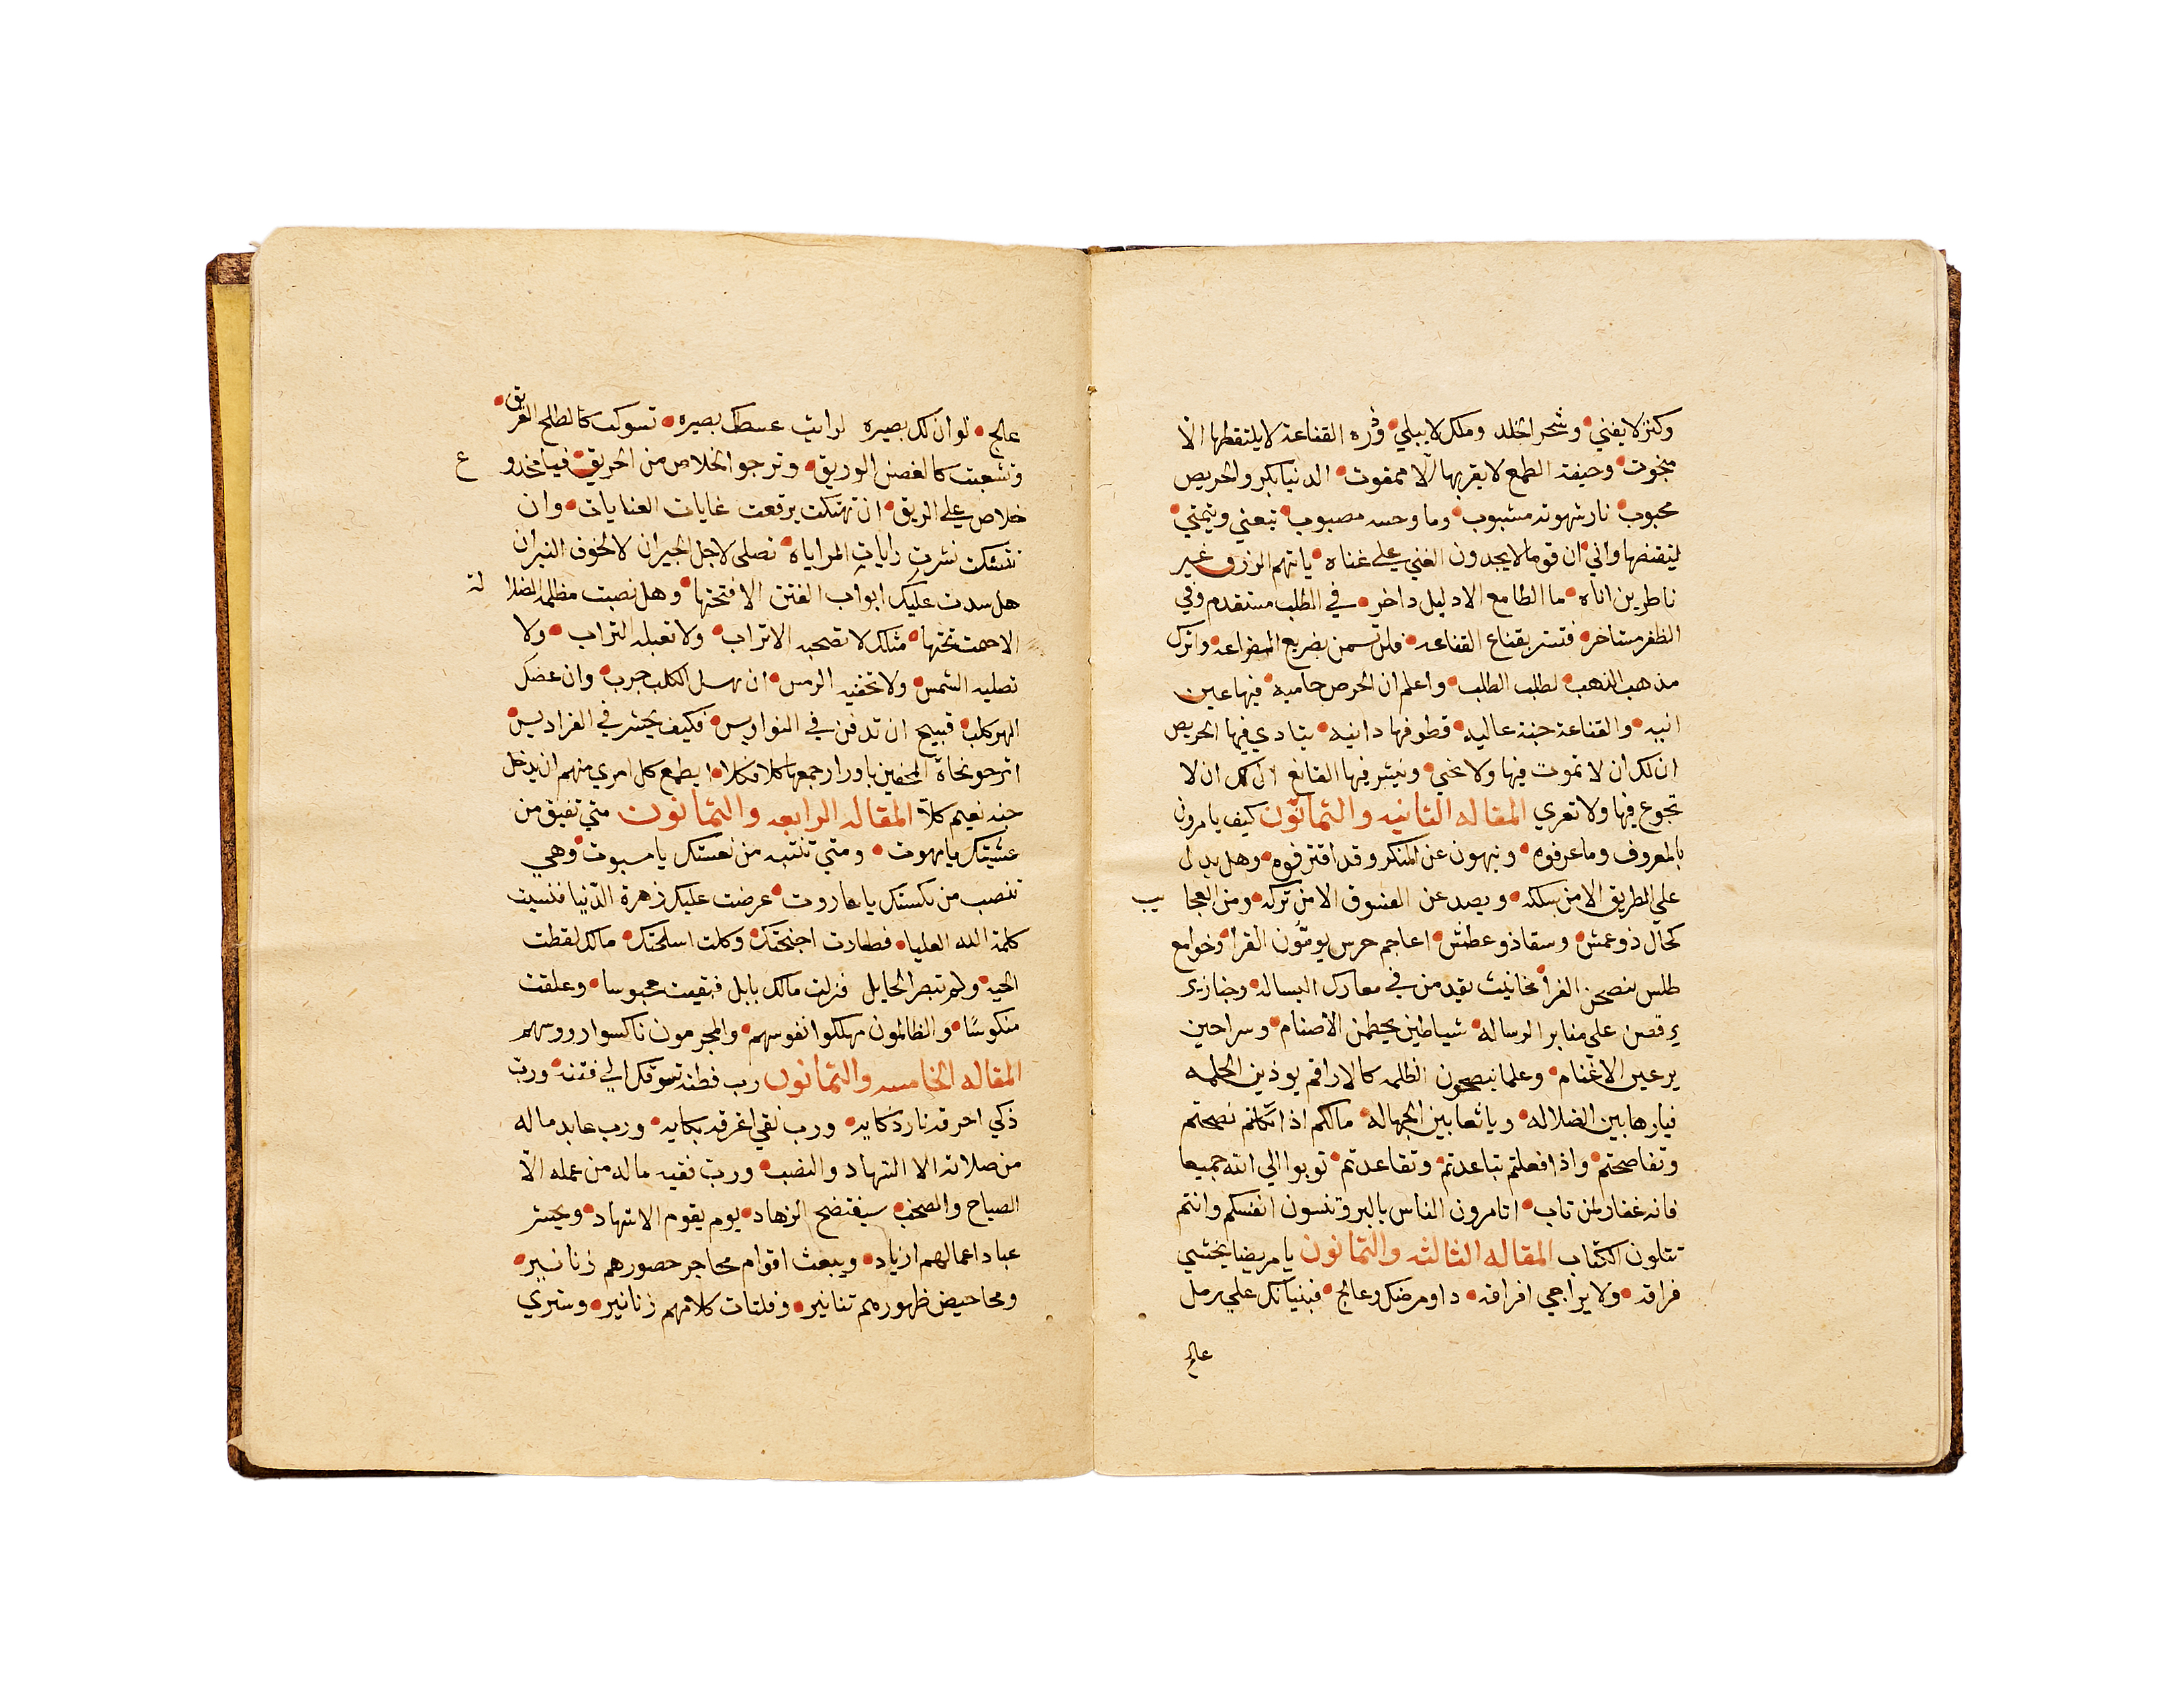 وكنز لا يفني وشحر الخلد وملك لا يبلي وثره القناعة لا يلتقطها الا
مبخوت وجيفة الطمع لا يقربها الا ممقوت الدنيا بكر والحريص
محبوب نار شهوته مشبوب وما وجهه مصبوب تبعني ويتمني
ليقنصها واني ان قوما لا يجدون الغني علي غناه ياتهم الرزق غير
ناطرين اناه ما الطامع الا دليل داخر في الطلب مستقدم وفي
الظفر مستاخر فتستر بقناع القناعه فلن تسمن بضريع الضراعه واترك
مذهب الذهب لطلب الطلب واعلم ان الحرص حاميه فيها عين
انيه والقناعة جنة عاليه قطوفها دانيه ينادي فيها الحريص
ان لك ان لا تموت فيها ولا تحيي ويبشر فيها القانع ان لك ان لا
تجوع فيها ولا تعري المقاله الثانيه والثمانون كيف يامرون
بالمعروف وما عرفوه وينهون عن المنكر وقد اقترفوه وهل يدل
علي الطريق الا من سلكه ويصد عن الفسوق الا من تركه ومن العجايب
كحال ذو عمش وسقا ذو عطش اعاجم خرس يومون القرا وجوامع
طلس ينصحن القرا مخانيث يقدمن في معارك البساله وخنازير
يرقصن علي منابر الرساله شياطين يحطمن الاصنام وسراحين
يرعين الاغنام وعلما ينصحون الظلمه كالاراقم يوذين الحلمه
فيا رهابين الضلاله ويا ثعابين الجهاله مالكم اذا تكلتم نصحتم
وتفاصحتم واذا فعلتم تباعدتم وتقاعدتم توبوا الي الله جميعا
فانه غفار لمن تاب اتامرون الناس بالبر وتنسون انفسكم وانتم
تتلون الكتاب المقاله الثالثه والثمانون يا مريضا يختشي
فراقه ولا يراجي افراقه داو مرضك وعالج فبنيانك علي رمل
عالج
عالج لو ان لك بصيره لرايت عسطك بصيره تسوكت كالطلح الغريق
وتشعبت كالغصن الوريق وترجو الخلاص من الحريق فيا مخدوع
خلاص علي الريق ان تهتكت برقعت غايات العنايات وان
تنسكت نشرت رايات المراياه تصلي لاجل الجيران لا لخوف النيران
هل سدت عليك ابواب الفتن الا فتحتها وهل نصبت مظله الضلالة
الا حمت تحتها مثلك لا تصحبه الاتراب ولا تقبله التراب ولا
تصليه الشمس ولا تخفيه الرمس ان غسل الكلب جرب وان عضك
الهر كلب قبيح ان تدفن في النواويس فكيف تحشر في الفراديس
اترجو نجاة المخفين باوزار جمعها كلا فكلا ايطمع كل امري منهم ان يدخل
جنه نعيم كلا المقاله الرابعه والثمانون متي تفيق من
غشيتك يا مهوت ومتي تنتبه من نعستك يا مسبوت وهي
تنصب من نكستك يا هاروت عرضت عليك زهرة الدنيا فنسيت
كلمة الله العليا فطارت اجنحتك وكلت اسلحتك مالك لقطت
الحبه ولم تبصر الحايل فنزلت مالك بابل فبقيت محبوسا وعلقت
منكوسا والظالمون مهلكوا نفوسهم والمجرمون ناكسوا رووسهم
المقاله الخامسه والثمانون رب فطنه تسوقك الي فتنه ورب
ذكي احرقه نار ذكايه ورب نقي اغرقه بكايه ورب عابد ماله
من صلاته الا السهاد والنصب ورب فقيه ماله من عمله الا
الصياح والصخب سيفتضح الزهاد يوم يقوم الاشهاد ويحشر
عباد اعمالهم ازياد ويبعث اقوام محاجر حصورهم زنانير
ومحاحيض ظهورهم تنانير وفلتات كلامهم زنانير وستري